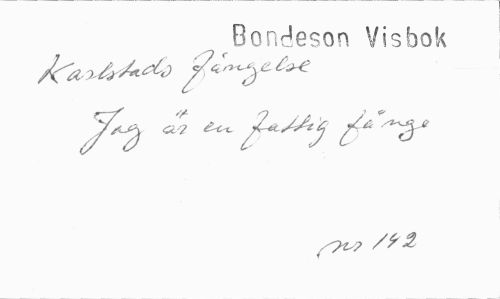 Bondeson Visbok
Karlstads fängelse
Jag är en fattig fånge
nr 142